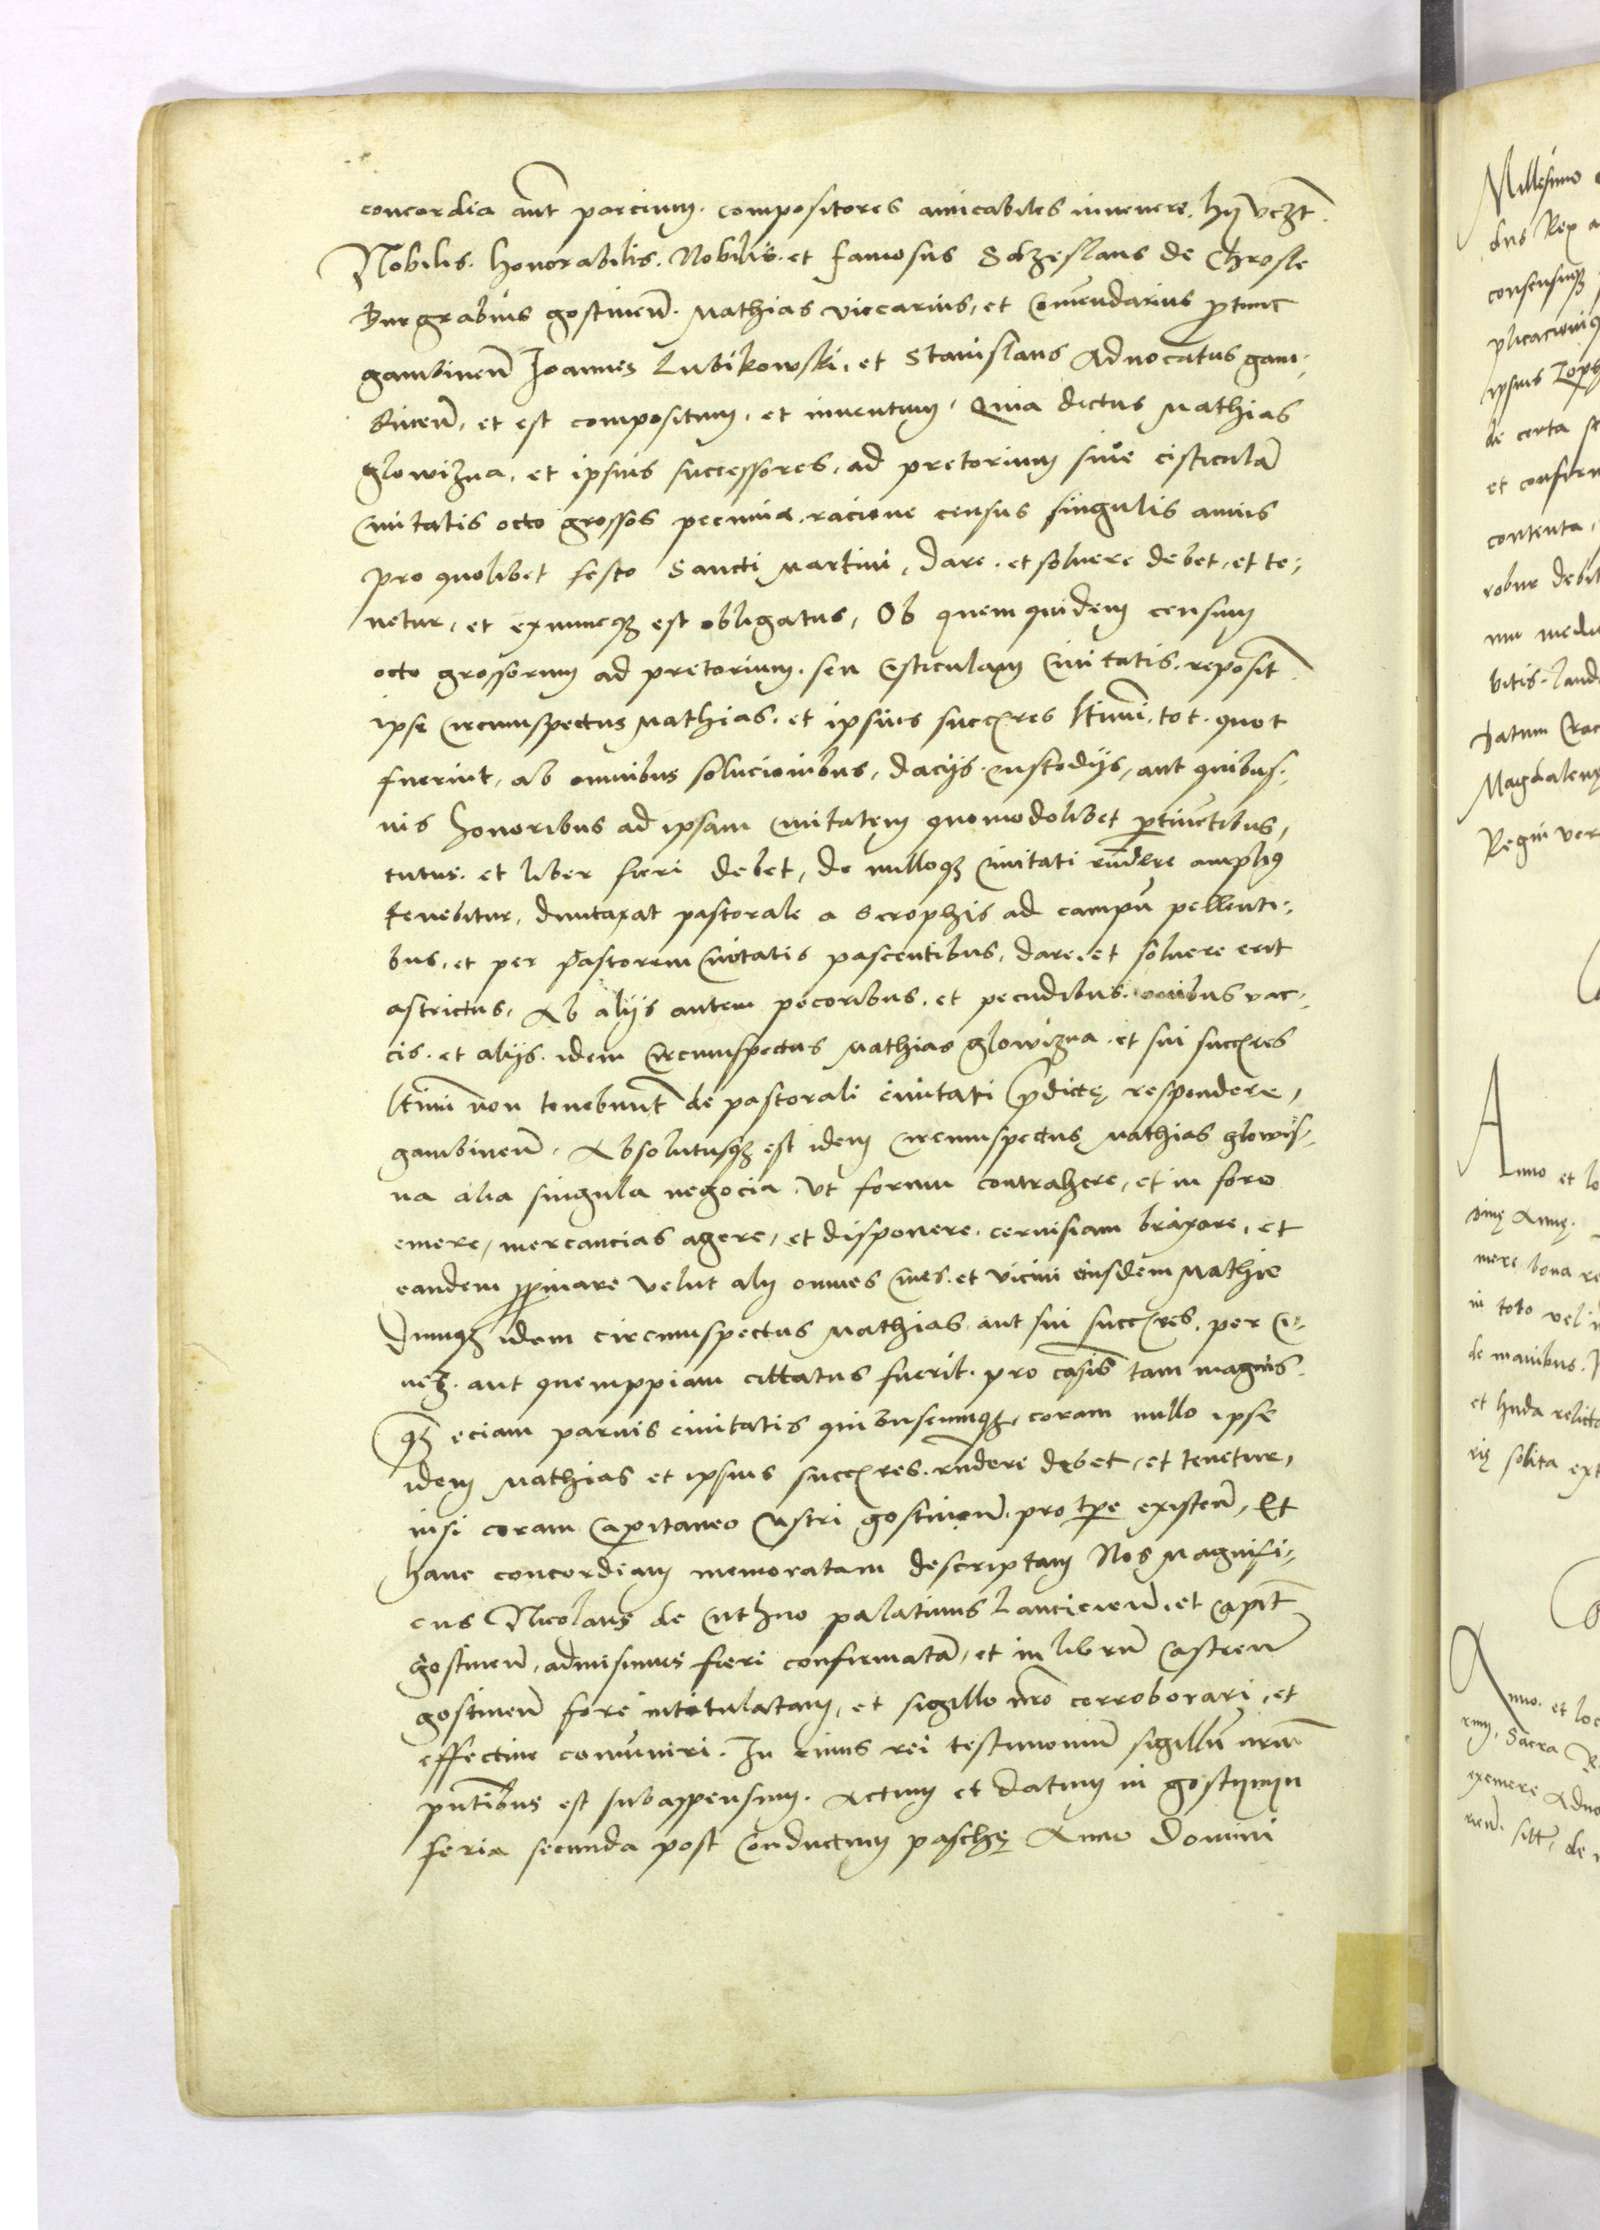 concordia aut parcium. compositores amicabiles invenere. hij vczt.
Nobilis. honorabilis. Nobilis. et famosus Sdzeslaus de Chrosle
Burgrabius gostinen̄. Mathias viccarius, et Comendarius ptunc
gambinen̄ Joannes Lubikowski, et Stanislaus Advocatus gam-
binen̄, et est compositum, et inventum, Quia dictus Mathias
glowizna, et ipsius successores, ad pretorium sive cisticulā
Civitatis octo grossos pecunie racione census singulis annis
pro quolibet festo Sancti Martini, dare. et solvere debet, et te-
netur, et exnuncqz est obligatus, Ob quem quidem censum
octo grossorum ad pretorium. seu Cisticulam Civitatis. reposit.
ipse Circumspectus Mathias. et ipsius succres ltimi. tot. quot
fuerint, ab omnibus solucionibus, dacijs. custodijs, aut quibus-
vis honoribus ad ipsam Civitatem quomodolibet ptinētibus,
tutus. et liber fieri debet, de nulloqz Civitati rndere ampliꝰ
tenebitur, duntaxat pastorale a Scrophis ad campū pellenti-
bus, et per Pastorem Civitatis pascentibus, dare, et solvere erit
astrictus, Ab alijs autem pecoribus. et pecudibus. ovibus vac-
cis. et alijs. idem Circumspectus Mathias glowizna. et sui succres
ltimi non tenebunt̄ de pastorali Civitati p̄dictę respondere,
gambinen̄. Absolutusqz est idem Circumspectus Mathias glowis-
na alia singula negocia. vt forum contrahere, et in foro
emere, mercancias agere, et disponere. cervisiam braxare, et
eandem ppinare velut alij omnes Cives. et vicini eiusdem Mathie
Dumqz idem circumspectus Mathias aut sui succres. per Ci-
vez. aut quemppiam cittatus fuerit. pro casis tam magnis.
qz eciam parvis civitatis quibuscumqz, coram nullo ipse
idem Mathias et ipsius succres. rndere debet, et tenetur,
nisi coram Capitaneo Castri gostinen̄. pro tpe existen̄, Et
hanc concordiam memoratam descriptam Nos Magnifi-
cus Nicolaus de Cuthno palatinus Lancicien̄. et Capit̄
gostinen̄, admisimus fieri confirmatā, et in librū Castren̄
gostinen̄ fore intitulatam, et sigillo nro corroborari, et
effective comuniri. In cuius rei testimoniū sigillū nrm̄
pntibus est subappensum. Actum et datum in gostijnijn
feria secunda post Conductum paschę Anno Domini